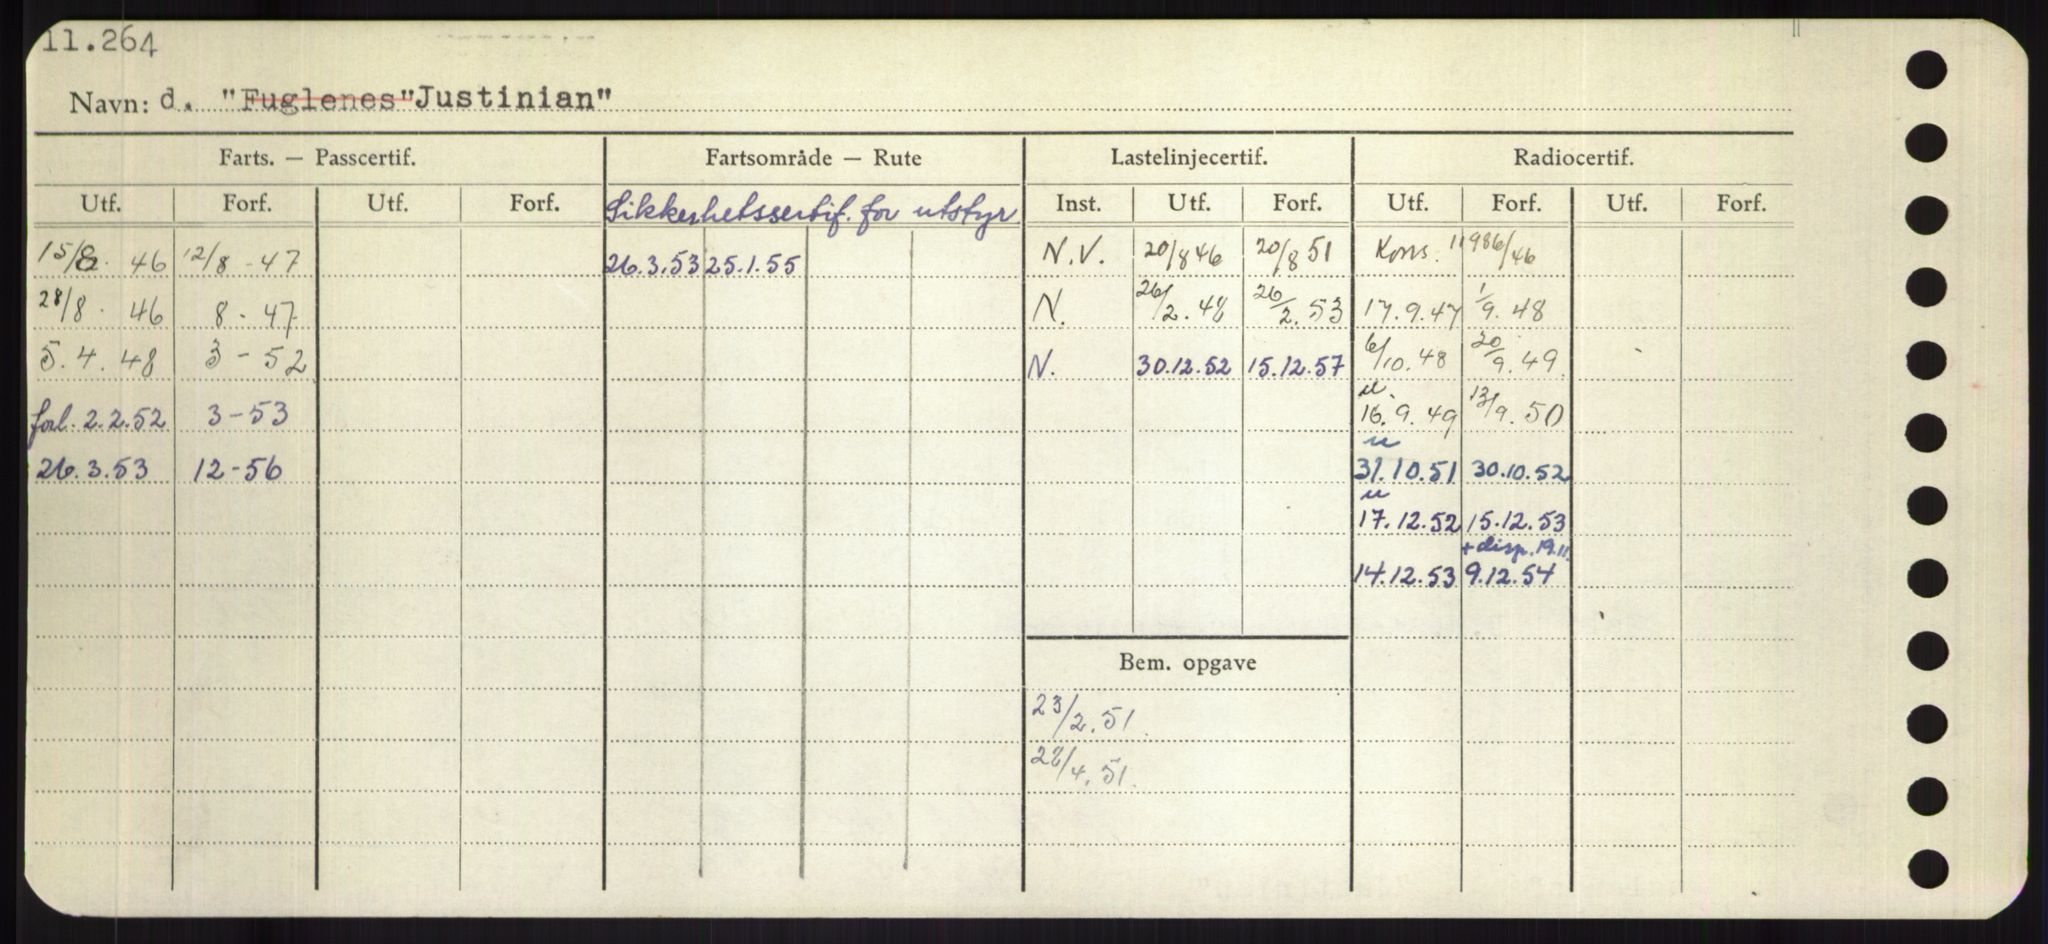 11.264
Navn: d. "Fuglenes" Justinian"
Farts. — Passcertif. Fartsområde — Rute Lastelinjecertif. Radiocertif.
Utf. Forf. Utf. Forf. Sikkerhetssertif. for utstyr Inst. Utf. Forf. Utf. Forf. Utf. Forf.
15/8. 46 12/8 - 47 26.3.53 25.1.55 N.V. 20/8 46 20/8 51 Kons. 11986/46
28/8. 46 8 - 47 N. 26/2. 48 26/2. 53 17.9.47 1/9. 48
5.4.48 3 - 52 N. 30.12.52 15.12.57 6/10. 48 20/9. 49
u.
forl. 2.2.52 3 - 53 16.9.49 13/9. 50
u
26.3.53 12 - 56 31.10.51 30.10.52
u
17.12.52 15.12.53
+ disp. 19.11.
14.12.53 9.12.54
Bem. opgave
23/2. 51
28/4. 51